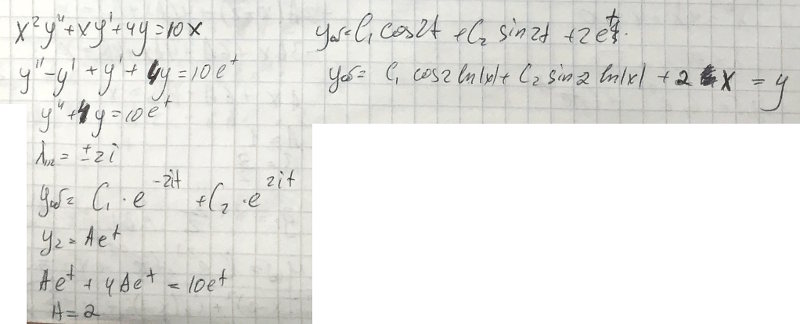 x²y" + xy' + 4y = 10x
y" - y' + y' + 4y = 10e^t
y" + 4y = 10e^t
λ₁,₂ = ± 2i
yоб = C₁ · e^(-2it) + C₂ · e^(2it)
y₂ = Ae^t
Ae^t + 4Ae^t = 10e^t
A = 2
yоб = C₁ cos2t + C₂ sin2t + 2e^t.
yоб = C₁ cos2 ln|x| + C₂ sin2 ln|x| + 2x = y